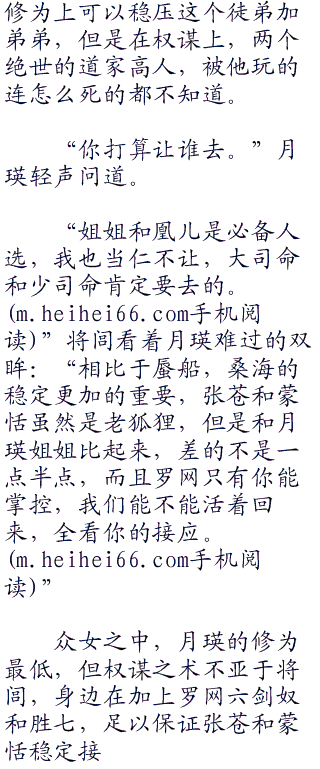 修为上可以稳压这个徒弟加
弟弟，但是在权谋上，两个
绝世的道家高人，被他玩的
连怎么死的都不知道。
“你打算让谁去。”月
瑛轻声问道。
“姐姐和凰儿是必备人
选，我也当仁不让，大司命
和少司命肯定要去的。
(m.heihei66.com手机阅
读)”将闾看着月瑛难过的双
眸：“相比于蜃船，桑海的
稳定更加的重要，张苍和蒙
恬虽然是老狐狸，但是和月
瑛姐姐比起来，差的不是一
点半点，而且罗网只有你能
掌控，我们能不能活着回
来，全看你的接应。
(m.heihei66.com手机阅
读)”
众女之中，月瑛的修为
最低，但权谋之术不亚于将
闾，身边在加上罗网六剑奴
和胜七，足以保证张苍和蒙
恬稳定接